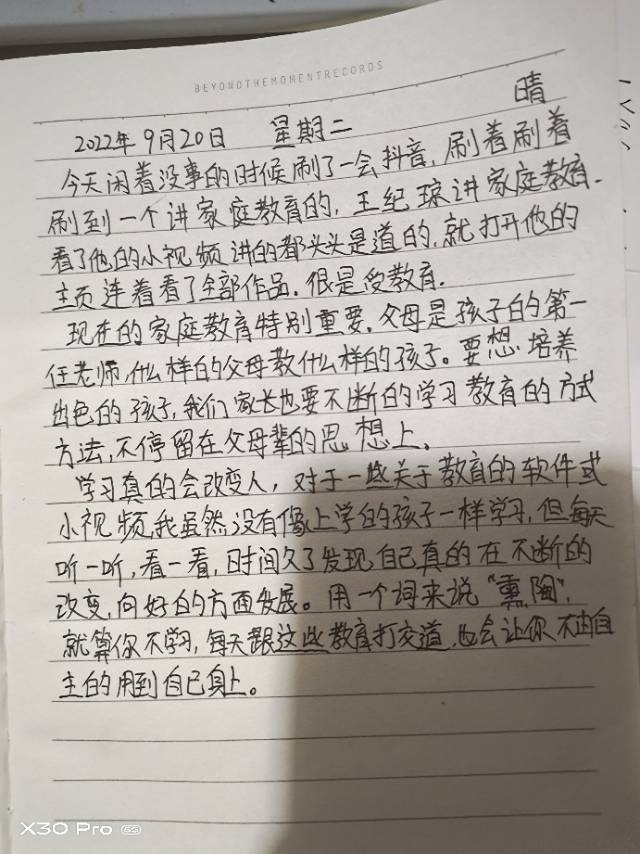 BEYONDTHEMOMENTRECORDS
2022年9月20日 星期二 晴
今天闲着没事的时候刷了一会抖音,刷着刷着
刷到一个讲家庭教育的,王纪琼讲家庭教育.
看了他的小视频讲的都头头是道的,就打开他的
主页连着看了全部作品.很是受教育.
现在的家庭教育特别重要.父母是孩子的第一
任老师,什么样的父母教什么样的孩子。要想培养
出色的孩子,我们家长也要不断的学习教育的方式
方法,不停留在父母辈的思想上、
学习真的会改变人,对于一些关于教育的软件或
小视频,我虽然没有像上学的孩子一样学习,但每天
听一听,看一看,时间久了发现自己真的在不断的
改变,向好的方面发展。用一个词来说“熏陶”,
就算你不学习,每天跟这些教育打交道,也会让你不由自
主的用到自己身上。
X30 Pro 5G